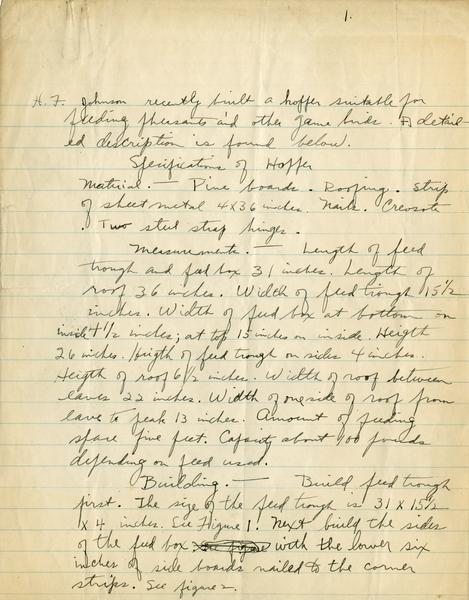 1.
H. F. Johnson recently built a hoffer suitable for
feeding pheasants and other game birds. A detail-
ed description is found below.
Specifications of Hoffer
Material. — Pine boards. Roofing. Strip
of sheet metal 4 X 36 inches. Nails. Creosote
. Two steel strap hinges.
Measurements. — Length of feed
trough and feed box 31 inches. Length of
roof 36 inches. Width of feed trough 15 1/2
inches. Width of feed box at bottom on
inside 4 1/2 inches; at top 15 inches on inside. Heigth
26 inches. Heigth of feed trough on sides 4 inches.
Heigth of roof 6 1/2 inches. Width of roof between
eaves 22 inches. Width of one side of roof from
eave to peak 13 inches. Amount of feeding
space five feet. Capsity about 100 pounds
depending on feed used.
Building. — Build feed trough
first. The size of the feed trough is 31 X 15 1/2
X 4 inches. See Figure 1. Next build the sides
of the feed box with the lower six
inches of side boards nailed to the corner
strips. See figure 2.